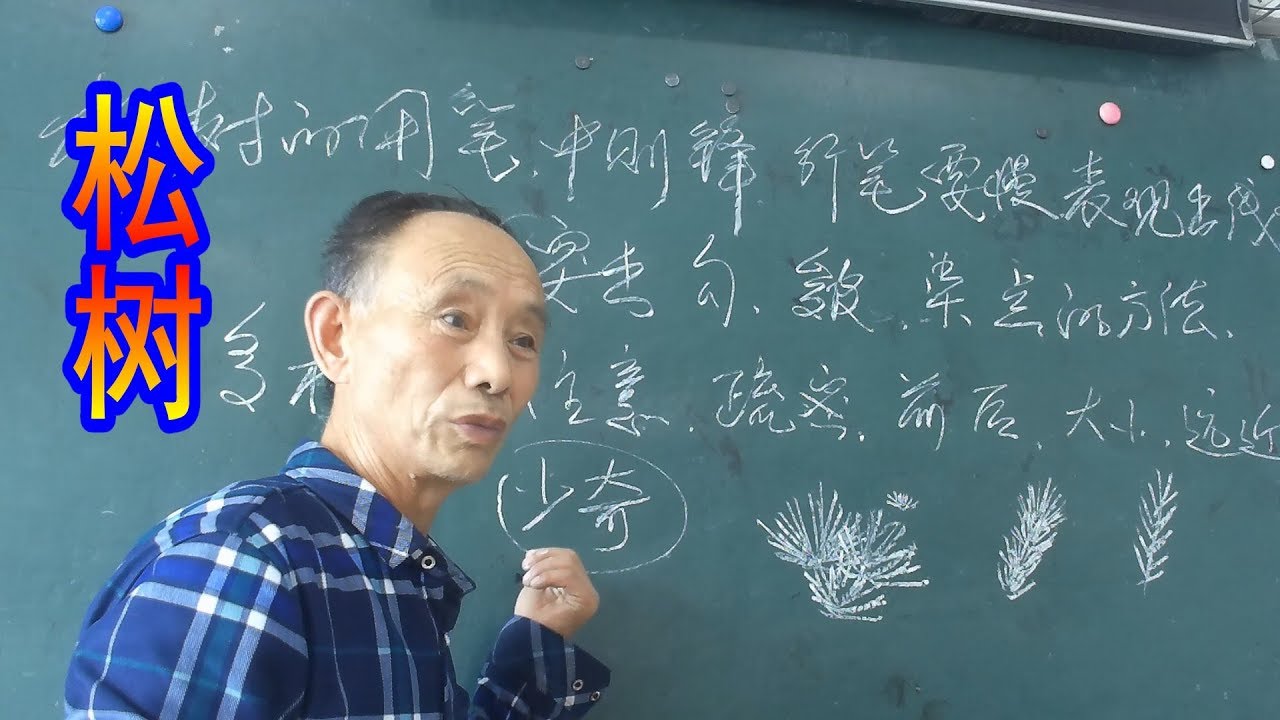 松树
树的用笔，中侧锋 行笔要慢 表现出线
突出 勾、皴、染 点的方法、
多 注意、疏密、前后、大小、远近